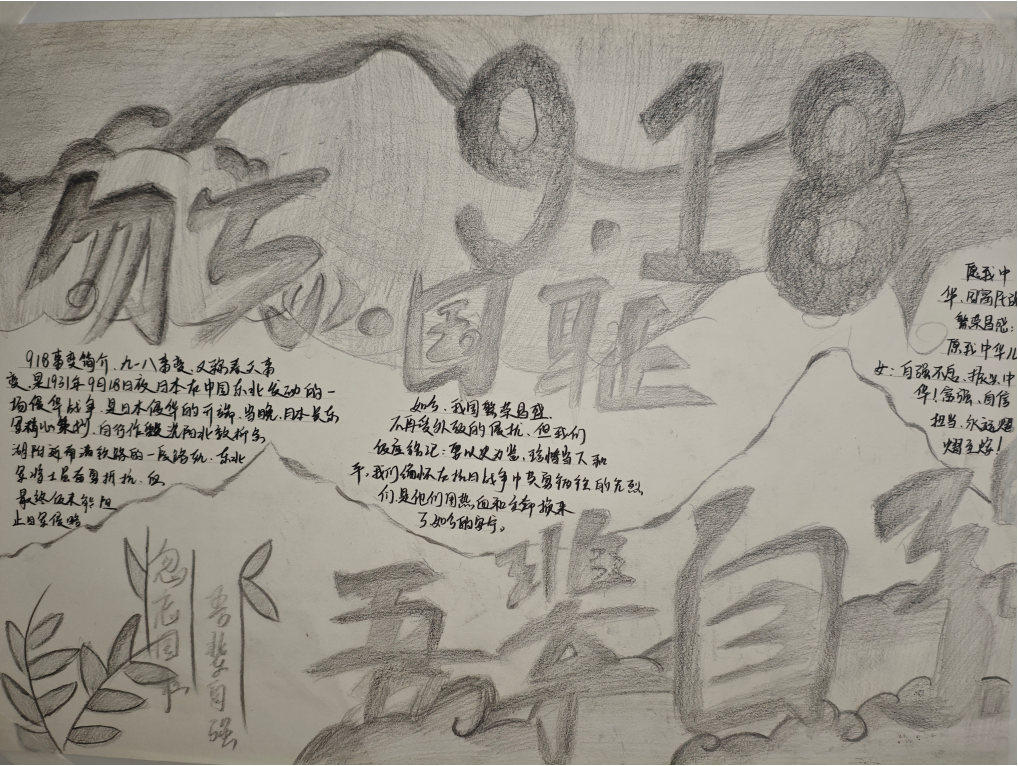 9.18
勿忘国耻
918事变简介,九一八事变、又称奉天事
变、是1931年9月18日夜日本在中国东北发动的一
场侵华战争,是日本侵华的开端,当晚,日本关东
军精心策划,自行炸毁沈阳北
沈阳近南满铁路的一段路轨,东北
军将士虽奋勇抵抗,但
最终仍未能阻
止日军侵略
如今,我国繁荣昌盛
不再受外敌的侵扰,但我们
依应铭记:要以史为鉴,珍惜当下和
平,我们缅怀在抗日战争中英勇牺牲的先烈
们,是他们用热血和生命换来
了如今的安宁。
愿我中
华、国富民
繁荣昌盛:
愿我中华儿
女:自强不息、振兴中
华!富强、自信
担当,永远熠
熠生辉!
勿忘国耻
吾辈自强
吾辈自